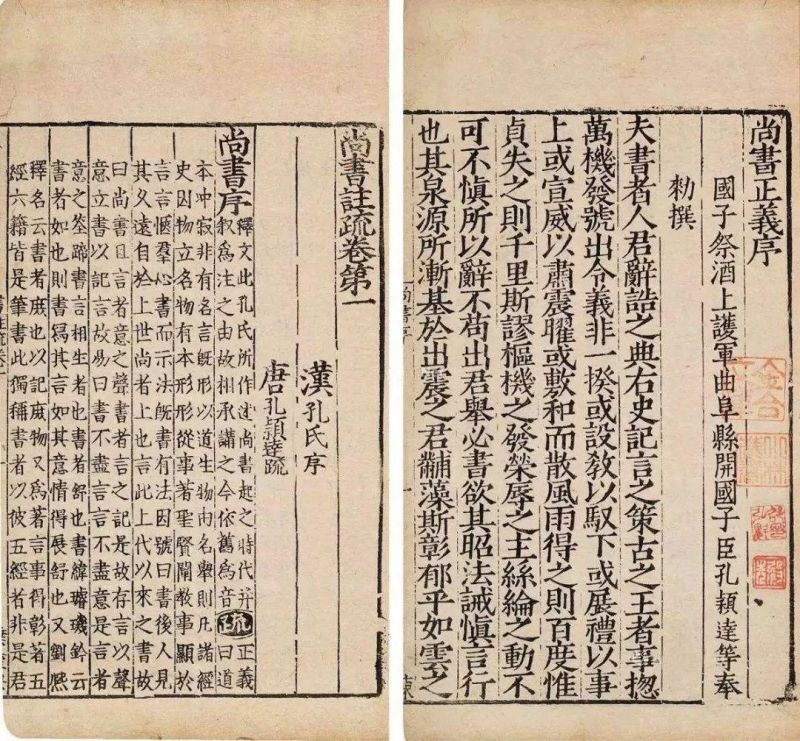 尚書正義序
國子祭酒上護軍曲阜縣開國子臣孔穎達等奉
勑撰
夫書者人君辭誥之典右史記言之策古之王者事揔
萬機發號出令義非一揆或設敎以馭下或展禮以事
上或宣威以肅震曜或敷和而散風雨得之則百度惟
貞失之則千里斯謬樞機之發榮辱之主絲綸之動不
可不愼所以辭不苟出君舉必書欲其昭法誡愼言行
也其泉源所漸基於出震之君黼藻斯彰郁乎如雲之
尚書註疏卷第一
漢孔氏序
唐孔穎達疏
尚書序
釋文此孔氏所作述尚書起之時代并
叙爲注之由故相承講之今依舊爲音疏正義曰道
本冲寂非有名言旣形以道生物由名舉則凡諸經
史因物立名物有本形形從事著聖賢闡敎事顯於
言言愜羣心書而示法旣書有法因號曰書後人見
其久遠自於上世尚者上也言此上代以來之書故
曰尚書且言者意之聲書者言之記是故存言以聲
意立書以記言故易曰書不盡言言不盡意是言者
意之筌蹄書言相生者也書者舒也書緯璿璣鈐云
書者如也則書寫其言如其意情得展舒也又劉熙
釋名云書者庶也以記庶物又爲著言事得彰著五
經六籍皆是筆書此獨稱書者以彼五經者非是君